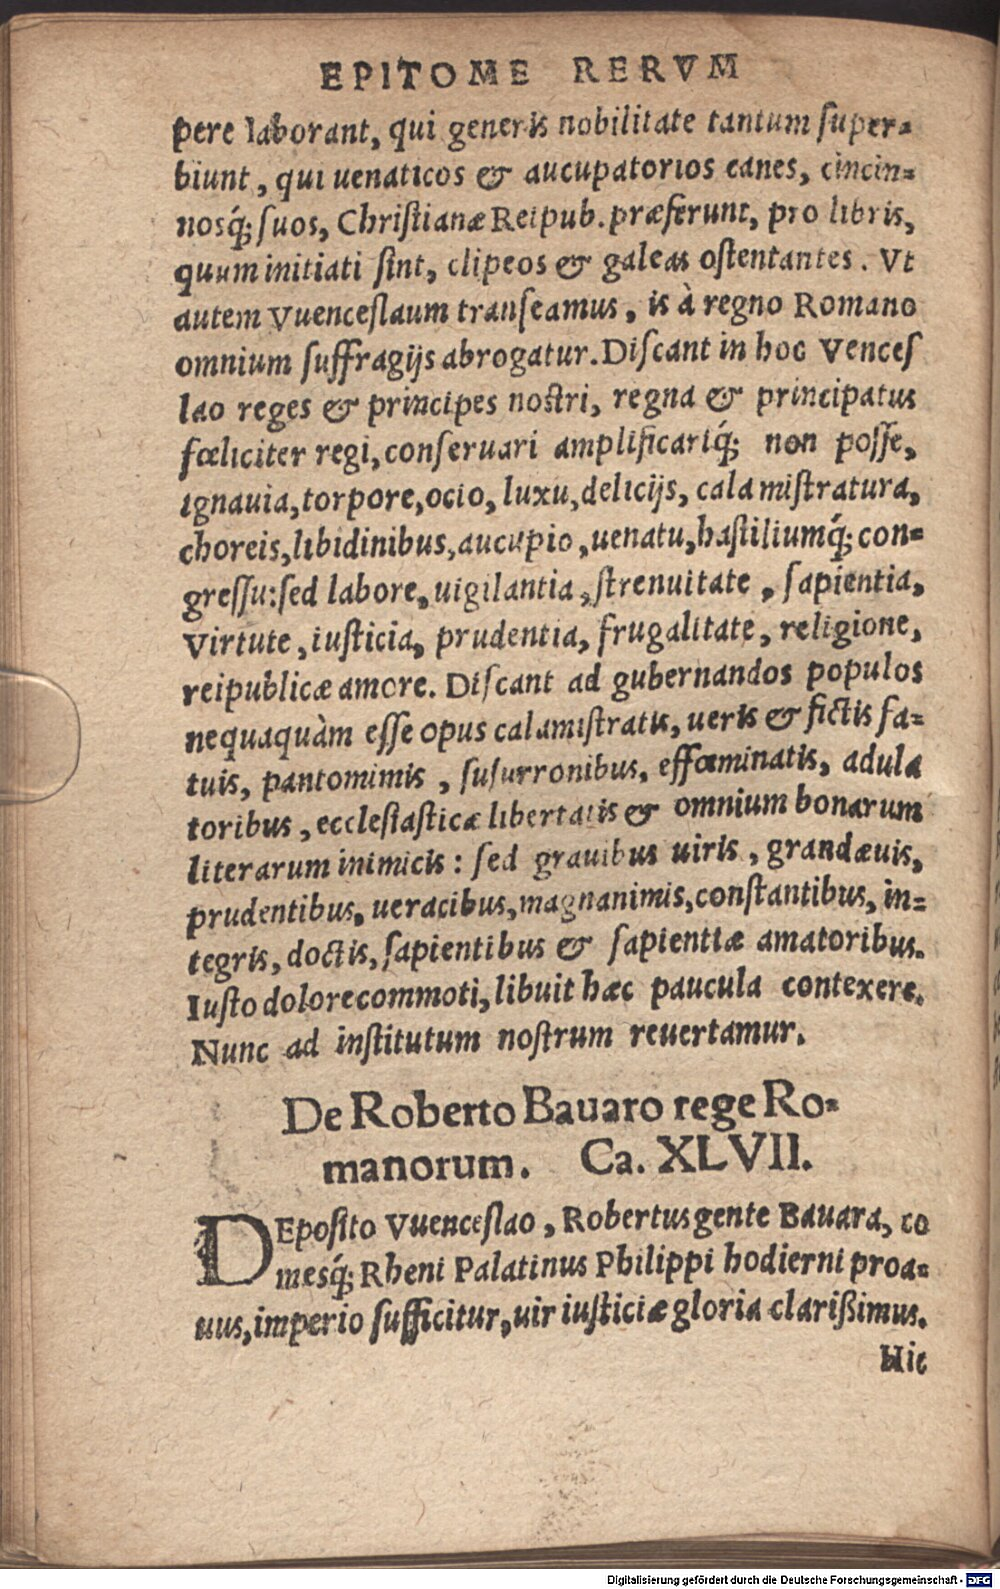 EPITOME RERVM
pere laborant, qui generis nobilitate tantum super-
biunt, qui uenaticos & aucupatorios canes, cincin-
nosq́; suos, Christianæ Reipub. præferunt, pro libris,
quum initiati sint, clipeos & galeas ostentantes. Vt
autem Vuenceslaum transeamus, is à regno Romano
omnium suffragijs abrogatur. Discant in hoc Vences
lao reges & principes nostri, regna & principatus
fœliciter regi, conseruari amplificariq́; non posse,
ignauia, torpore, ocio, luxu, delicijs, calamistratura,
choreis, libidinibus, aucupio, uenatu, hastiliumq́; con-
gressu: sed labore, uigilantia, strenuitate, sapientia,
Virtute, iusticia, prudentia, frugalitate, religione,
reipublicæ amore. Discant ad gubernandos populos
nequaquàm esse opus calamistratis, ueris & fictis fa-
tuis, pantomimis, susurronibus, effœminatis, adula
toribus, ecclesiasticæ libertatis & omnium bonarum
literarum inimicis: sed grauibus uiris, grandæuis,
prudentibus, ueracibus, magnanimis, constantibus, in-
tegris, doctis, sapientibus & sapientiæ amatoribus.
Iusto dolore commoti, libuit hæc paucula contexere.
Nunc ad institutum nostrum reuertamur.
De Roberto Bauaro rege Ro-
manorum. Ca. XLVII.
DEposito Vuenceslao, Robertus gente Bauara, co
mesq́; Rheni Palatinus Philippi hodierni proa-
uus, imperio sufficitur, uir iusticiæ gloria clarißimus.
Hic
Digitalisierung gefördert durch die Deutsche Forschungsgemeinschaft - DFG